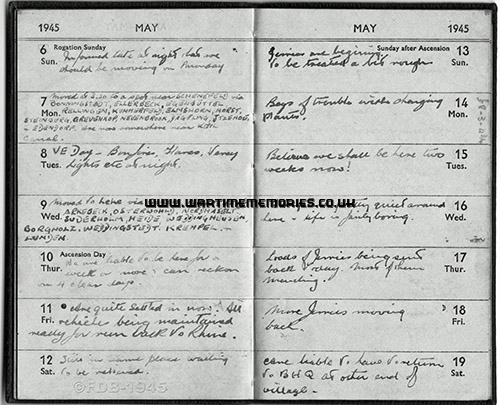 1945 MAY
6 Rogation Sunday
Sun. Informed late at night that we
should be moving on Monday
7 Moved at to a spot near SCHENEFELD via
Mon. BONNINGSTEDT, ELLERBECK, EGENBÜTTEL
RELLINGEN, KUMMERFELD, ELMSHORN, HORST,
STEINBURG,
+ EDENDORF. are somewhere near KIEL
Canal.
8 VE Day - Bonfires, Flares, Varey
Tues. Lights etc at night.
9 Moved to here via
Wed. ARKEBECK, OSTERWOHLD, NORDHASTEDT
SUDERHOLM, HEIDE, WEDDINGHUSEN,
BORGHOLZ, WEDDINGSTEDT, KREMPEL -
LUNDEN.
10 Ascension Day
Thur. We are liable to be here for a
week or more & can reckon
on 4 clear days.
11 Are quite settled in now. All
Fri. vehicle being maintained
ready for run back to Rhine.
12 Still in same place waiting
Sat. to be relieved.
©FDB-1945
MAY 1945
Sunday after Ascension 13
Jerries are beginning Sun.
to be treated a bit rough
Bags of trouble with changing 14
plants. Mon.
Believe we shall be here two 15
weeks now! Tues.
www.wartimememories.co.uk
quiet around 16
here & life is fairly boring. Wed.
Loads of Jerries being sent 17
back today. Most of them Thur.
marching.
More Jerries moving 18
back. Fri.
are liable to have to return 19
to BHQ at other end of Sat.
village.